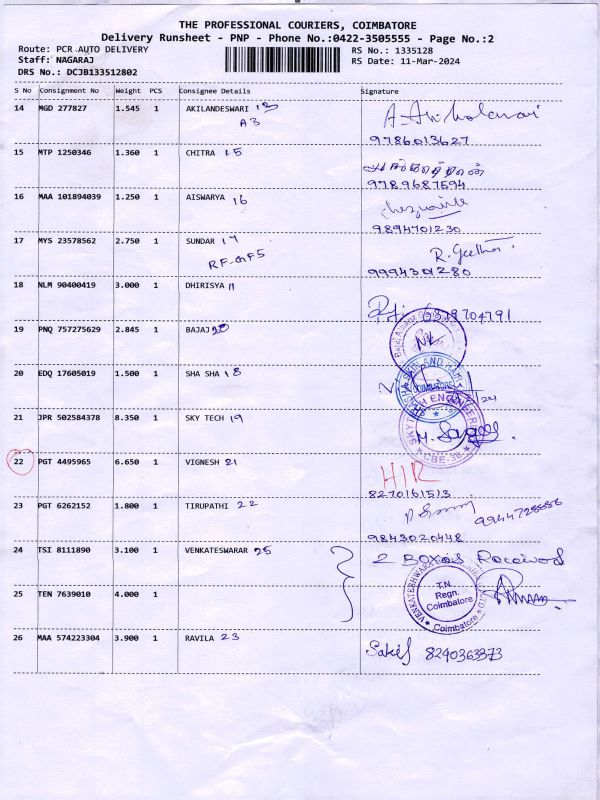 THE PROFESSIONAL COURIERS, COIMBATORE
Delivery Runsheet - PNP - Phone No.:0422-3505555 - Page No.:2
Route: PCR AUTO DELIVERY RS No.: 1335128
Staff: NAGARAJ RS Date: 11-Mar-2024
DRS No.: DCJB133512802
S No Consignment No Weight PCS Consignee Details Signature
14 MGD 277827 1.545 1 AKILANDESWARI 13
A3
9786013627
15 MTP 1250346 1.360 1 CHITRA 15
9789687594
16 MAA 101894039 1.250 1 AISWARYA 16
9894701230
17 MYS 23578562 2.750 1 SUNDAR 17 R. Geetha
RF-GF5
9994301280
18 NLM 90400419 3.000 1 DHIRISYA 11
6379704791
19 PNQ 757275629 2.845 1 BAJAJ 20
20 EDQ 17605019 1.500 1 SHA SHA 18
21 JPR 502584378 8.350 1 SKY TECH 19
CBE-38
22 PGT 4495965 6.650 1 VIGNESH 21 HIR
8270161513
23 PGT 6262152 1.800 1 TIRUPATHI 22
9843020448
24 TSI 8111890 3.100 1 VENKATESWARAR 25 2 Boxes Received
T.N
Regn.
Coimbatore
25 TEN 7639010 4.000 1
Coimbatore
26 MAA 574223304 3.900 1 RAVILA 23 8240363373